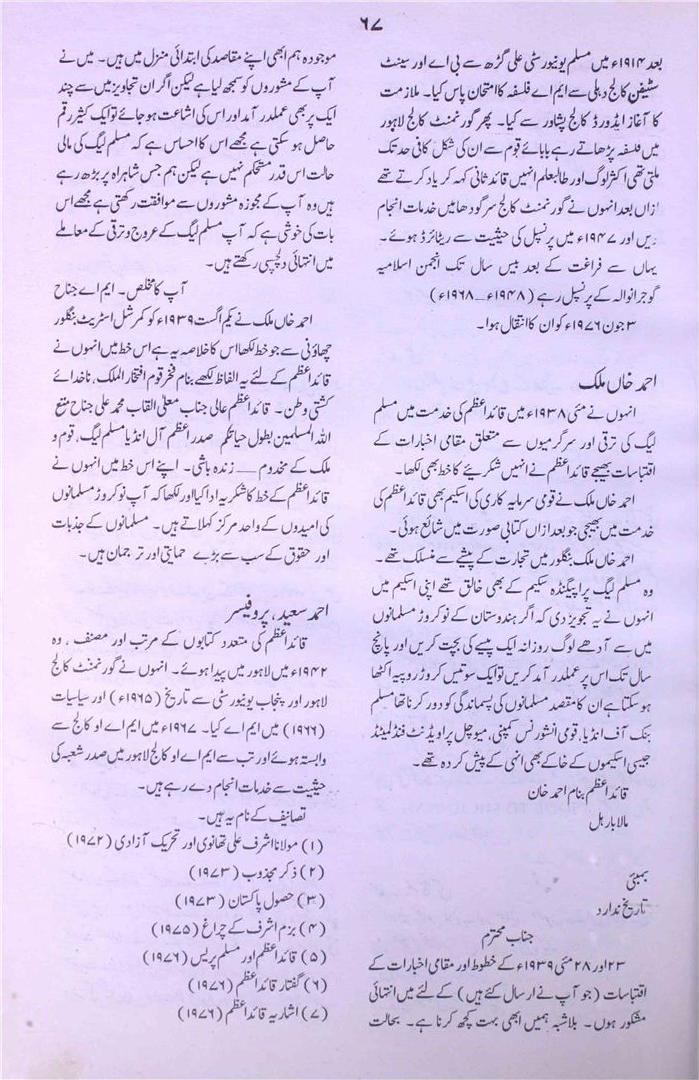 ۶۷
بعد ۱۹۱۴ء میں مسلم یونیورسٹی علی گڑھ سے بی اے اور سینٹ
سٹیفن کالج دہلی سے ایم اے فلسفہ کا امتحان پاس کیا۔ ملازمت
کا آغاز ایڈورڈ کالج پشاور سے کیا۔ پھر گورنمنٹ کالج لاہور
میں فلسفہ پڑھاتے رہے بابائے قوم سے ان کی شکل کافی حد تک
ملتی تھی اکثر لوگ اور طالبعلم انہیں قائد ثانی کہہ کر یاد کرتے تھے
ازاں بعد انہوں نے گورنمنٹ کالج سرگودھا میں خدمات انجام
دیں اور ۱۹۴۷ء میں پرنسپل کی حیثیت سے ریٹائرڈ ہوئے۔
یہاں سے فراغت کے بعد بیس سال تک انجمن اسلامیہ
گوجرانوالہ کے پرنسپل رہے (۱۹۴۸ء ــ ۱۹۶۸ء)
۳ جون ۱۹۷۶ء کو ان کا انتقال ہوا۔
احمد خاں ملک
انہوں نے مئی ۱۹۳۸ء میں قائداعظم کی خدمت میں مسلم
لیگ کی ترقی اور سرگرمیوں سے متعلق مقامی اخبارات کے
اقتباسات بھیجے قائداعظم نے انہیں شکریئے کا خط بھی لکھا۔
احمد خاں ملک نے قومی سرمایہ کاری کی اسکیم بھی قائداعظم کی
خدمت میں بھیجی جو بعد ازاں کتابی صورت میں شائع ہوئی۔
احمد خاں ملک بنگلور میں تجارت کے پیشے سے منسلک تھے۔
وہ مسلم لیگ پراپیگنڈہ سکیم کے بھی خالق تھے اپنی اسکیم میں
انہوں نے یہ تجویز دی کہ اگر ہندوستان کے نو کروڑ مسلمانوں
میں سے آدھے لوگ روزانہ ایک پیسے کی بچت کریں اور پانچ
سال تک اس پر عملدر آمد کریں تو ایک سو تیس کروڑ روپیہ اکٹھا
ہوسکتا ہے ان کا مقصد مسلمانوں کی پسماندگی کو دور کرنا تھا مسلم
بنک آف انڈیا، قومی انشورنس کمپنی، میوچل پراویڈنٹ فنڈ لمیٹڈ
جیسی اسکیموں کے خاکے بھی انہی کے پیش کردہ تھے۔
قائداعظم بنام احمد خان
مالا بار ہل
بمبئی
تاریخ ندارد
جناب محترم
۲۳ اور ۲۸ مئی ۱۹۳۹ء کے خطوط اور مقامی اخبارات کے
اقتباسات (جو آپ نے ارسال کئے ہیں) کے لئے میں انتہائی
مشکور ہوں۔ بلاشبہ ہمیں ابھی بہت کچھ کرنا ہے۔ بحالت
موجودہ ہم ابھی اپنے مقاصد کی ابتدائی منزل میں ہیں۔ میں نے
آپ کے مشوروں کو سمجھ لیا ہے لیکن اگر ان تجاویز میں سے چند
ایک پر بھی عملدر آمد اور اس کی اشاعت ہو جائے تو ایک کثیر رقم
حاصل ہو سکتی ہے مجھے اس کا احساس ہے کہ مسلم لیگ کی مالی
حالت اس قدر مستحکم نہیں ہے لیکن ہم جس شاہراہ پر بڑھ رہے
ہیں وہ آپ کے مجوزہ مشوروں سے موافقت رکھتی ہے مجھے اس
بات کی خوشی ہے کہ آپ مسلم لیگ کے عروج و ترقی کے معاملے
میں انتہائی دلچسپی رکھتے ہیں۔
آپ کا مخلص۔ ایم اے جناح
احمد خاں ملک نے یکم اگست ۱۹۳۹ء کو کمرشل اسٹریٹ بنگلور
چھاؤنی سے جو خط لکھا اس کا خلاصہ یہ ہے اس خط میں انہوں نے
قائداعظم کے لئے یہ الفاظ لکھے بنام فخر قوم افتخار الملک، ناخدائے
کشتی وطن۔ قائداعظم عالی جناب معلیٰ القاب محمد علی جناح متع
اللہ المسلمین بطول حیاتکم صدر اعظم آل انڈیا مسلم لیگ، قوم و
ملک کے مخدوم ــ زندہ باشی۔ اپنے اس خط میں انہوں نے
قائداعظم کے خط کا شکریہ ادا کیا اور لکھا کہ آپ نو کروڑ مسلمانوں
کی امیدوں کے واحد مرکز کہلاتے ہیں۔ مسلمانوں کے جذبات
اور حقوق کے سب سے بڑے حمایتی اور ترجمان ہیں۔
احمد سعید، پروفیسر
قائداعظم کی متعدد کتابوں کے مرتب اور مصنف، وہ
۱۹۴۲ء میں لاہور میں پیدا ہوئے۔ انہوں نے گورنمنٹ کالج
لاہور اور پنجاب یونیورسٹی سے تاریخ (۱۹۶۵ء) اور سیاسیات
(۱۹۶۶) میں ایم اے کیا۔ ۱۹۶۷ء میں ایم اے او کالج سے
وابستہ ہوئے اور تب سے ایم اے او کالج لاہور میں صدر شعبہ کی
حیثیت سے خدمات انجام دے رہے ہیں۔
تصانیف کے نام یہ ہیں۔
(۱) مولانا اشرف علی تھانوی اور تحریک آزادی (۱۹۷۲)
(۲) ذکر مجذوب (۱۹۷۳)
(۳) حصول پاکستان (۱۹۷۳)
(۴) بزم اشرف کے چراغ (۱۹۷۵)
(۵) قائداعظم اور مسلم پریس (۱۹۷۶)
(۶) گفتار قائداعظم (۱۹۷۶)
(۷) اشاریہ قائداعظم (۱۹۷۶)